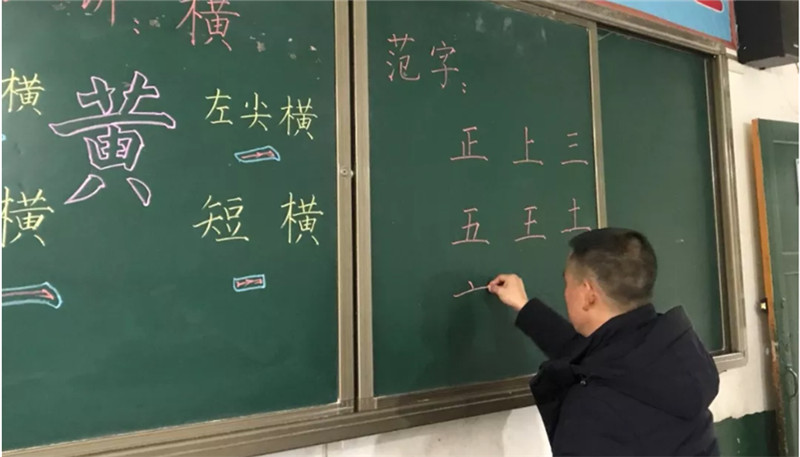 ：横
横
黄
左尖横
横
短横
范字：
正上三
五王土